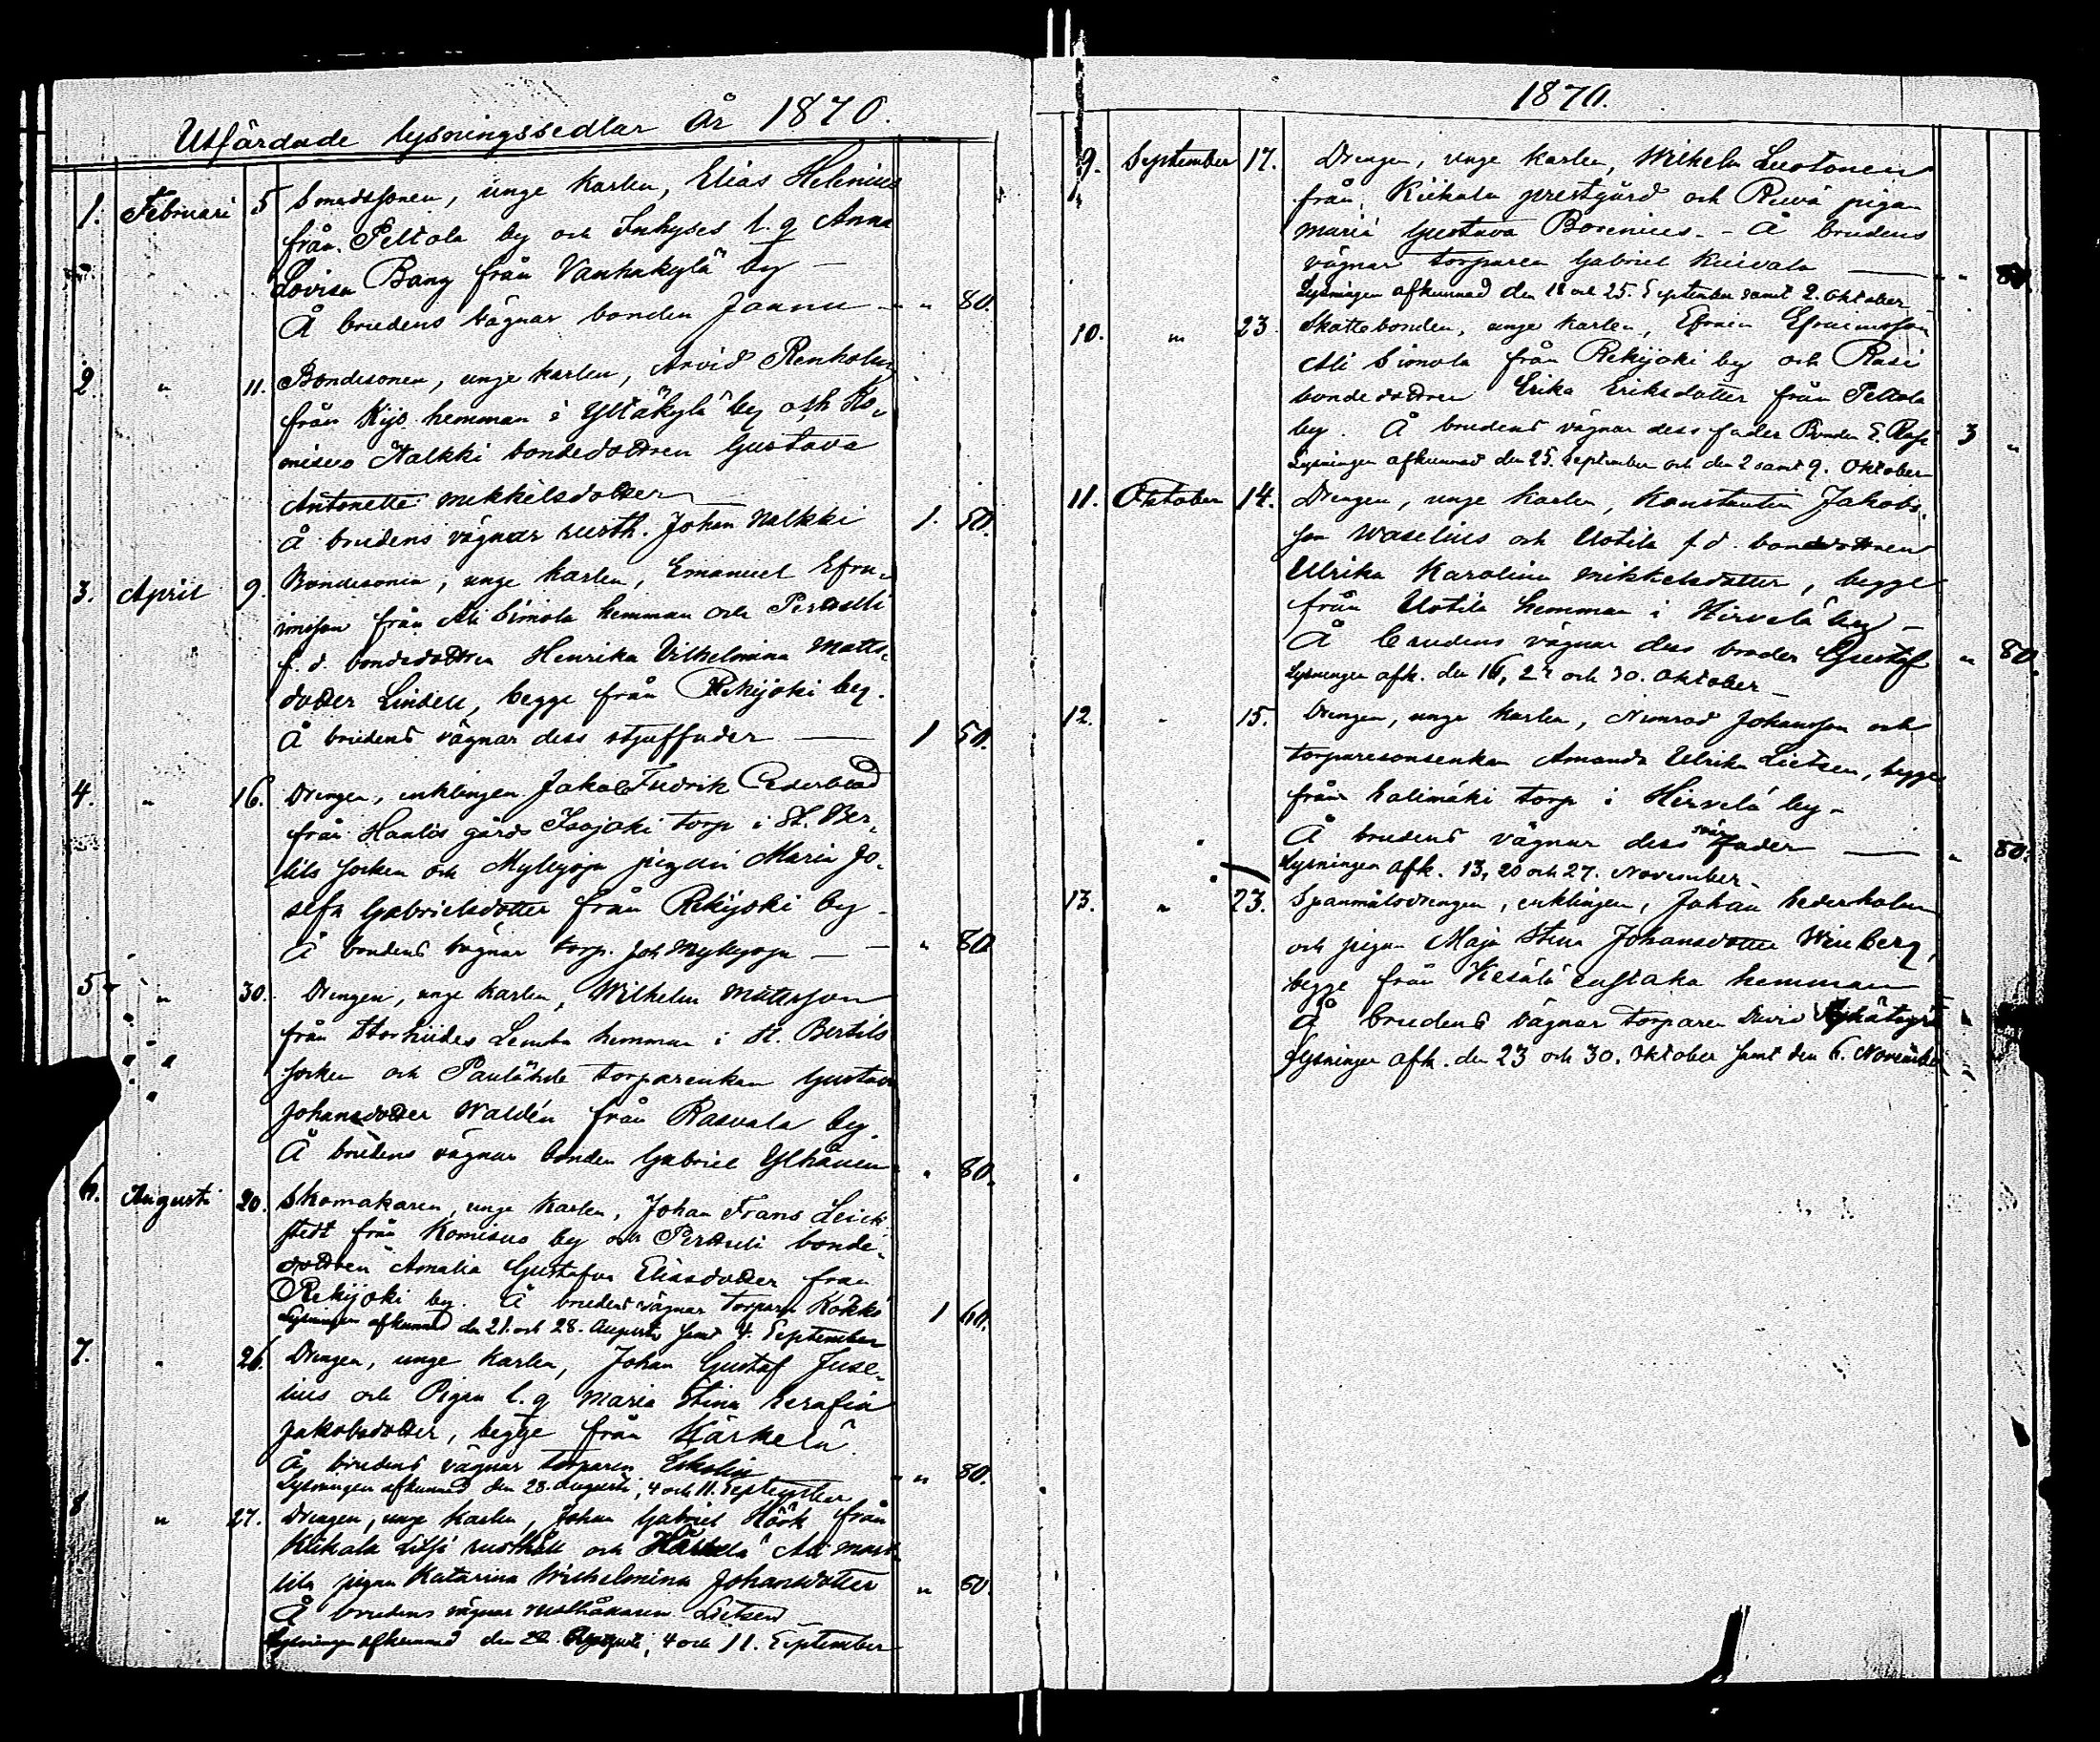 Utfärdade lysningssedlar År 1870.
1. Februari 5 Smedssonen, unge karlen, Elias Helenius
från Peltola by och Inhyses l. q Anna
Lovisa Bang från Vanhakylä by —
Å brudens vägnar bonden Jaanu — " 80.
2. " 11. Bondesonen, unge karlen, Arvid Renholm
från Kijo hemman i Yltäkylä by och Ko-
misuo Nalkki bondedottren Gustava
Antonetta Mikkelsdotter —
Å brudens vägnar rusth. Johan Nalkki 1. 50.
3. April 9. Bondesonen, unge karlen, Emanuel Efra-
imsson från Ali Simola hemman och Perttilli
f. d. bondedottren Henrika Vilhelmina Matts-
dotter Lindell, begge från Rekijoki by.
Å brudens vägnar dess styffader — 1 50.
4. " 16. Drengen, enklingen Jakob Fredrik Cederblad
från Haalis gårds Isojoki torp i St. Ber-
tils socken och Myllyoja pigan Maria Jo-
sefa Gabrielsdotter från Rekijoki by —
Å brudens vägnar torp. Joh Myllyoja — " 80
5 " 30. Drengen, unge karlen, Wilhelm Mattsson
från Storhiides Lemba hemman i St. Bertils
socken och torparenkan Gustava
Johansdotter Waldén från Rasvala by.
Å brudens vägnar bonden Gabriel Ylhäinen " 80.
6. Augusti 20. Skomakaren, unge karlen, Johan Frans Leick-
stedt från Komisuo by och Perttuli bonde-
dottren Amalia Gustafva Eliasdotter från
Rekijoki by. Å brudens vägnar torparn Kokko 1 60.
Lysningen afkunnad den 21. och 28. Augusti samt 4. September
7. " 26. Drengen, unge karlen, Johan Gustaf Juse-
lius och Pigan l. q Maria Stina Serafia
Jakobsdotter, begge från Kärkelä
Å brudens vägnar torparen Ekolin " 80.
Lysningen afkunnad den 28. Augusti, 4 och 11. September
8 " 27. Drengen, unge karlen, Johan Gabriel Höök från
Kiikala Liljs rusthåll och Ali Mart-
tila pigan Katarina Wilhelmina Johansdotter " 60.
Å brudens vägnar Målhåkaren Lietsen —
Lysningen afkunnad den 28. Augusti, 4 och 11. September
1870.
9. September 17. Drengen, unge karlen, Wilhelm Luotonen
från Kiikala prestgård och Riiva pigan
Maria Gustava Borenius. - Å brudens
vägnar torparen Gabriel Kuivala — " 80.
Lysningen afkunnad den 18 och 25. September samt 2. Oktober
10. " 23 Skattebonden, unge karlen, Efraim Efraimsson
Ali Simola från Rekijoki by och Rasi
bondedottren Erika Eriksdotter från Peltola
by. Å brudens vägnar dess fader Bonden E. Rasi 3 "
Lysningen afkunnad den 25. September och den 2 samt 9. Oktober
11. Oktober 14. Drengen, unge karlen, Konstantin Jakobs-
son Waselius och Uotila f. d. bondedottren
Ulrika Karolina Mikkelsdotter, begge
från Uotila hemman i Hirvelä by —
Å brudens vägnar dess broder Gustaf " 80.
Lysningen afk. den 16, 23 och 30. Oktober —
12. " 15. Drengen, unge karlen, Nimrod Johansson och
torparesonsenkan Amanda Ulrika Lietsen, begge
från Salimäki torp i Hirvelä by —
Å brudens vägnar dess svärfader — " 80.
Lysningen afk. 13, 20 och 27. November —
13. " 23. Spanmålsdrengen, enklingen, Johan Cederholm
och pigan Maja Stina Johansdotter Winberg,
begge från Kesälä Eustaka hemman
Å brudens vägnar torparen David
Lysningen afk. den 23 och 30. Oktober samt den 6. November